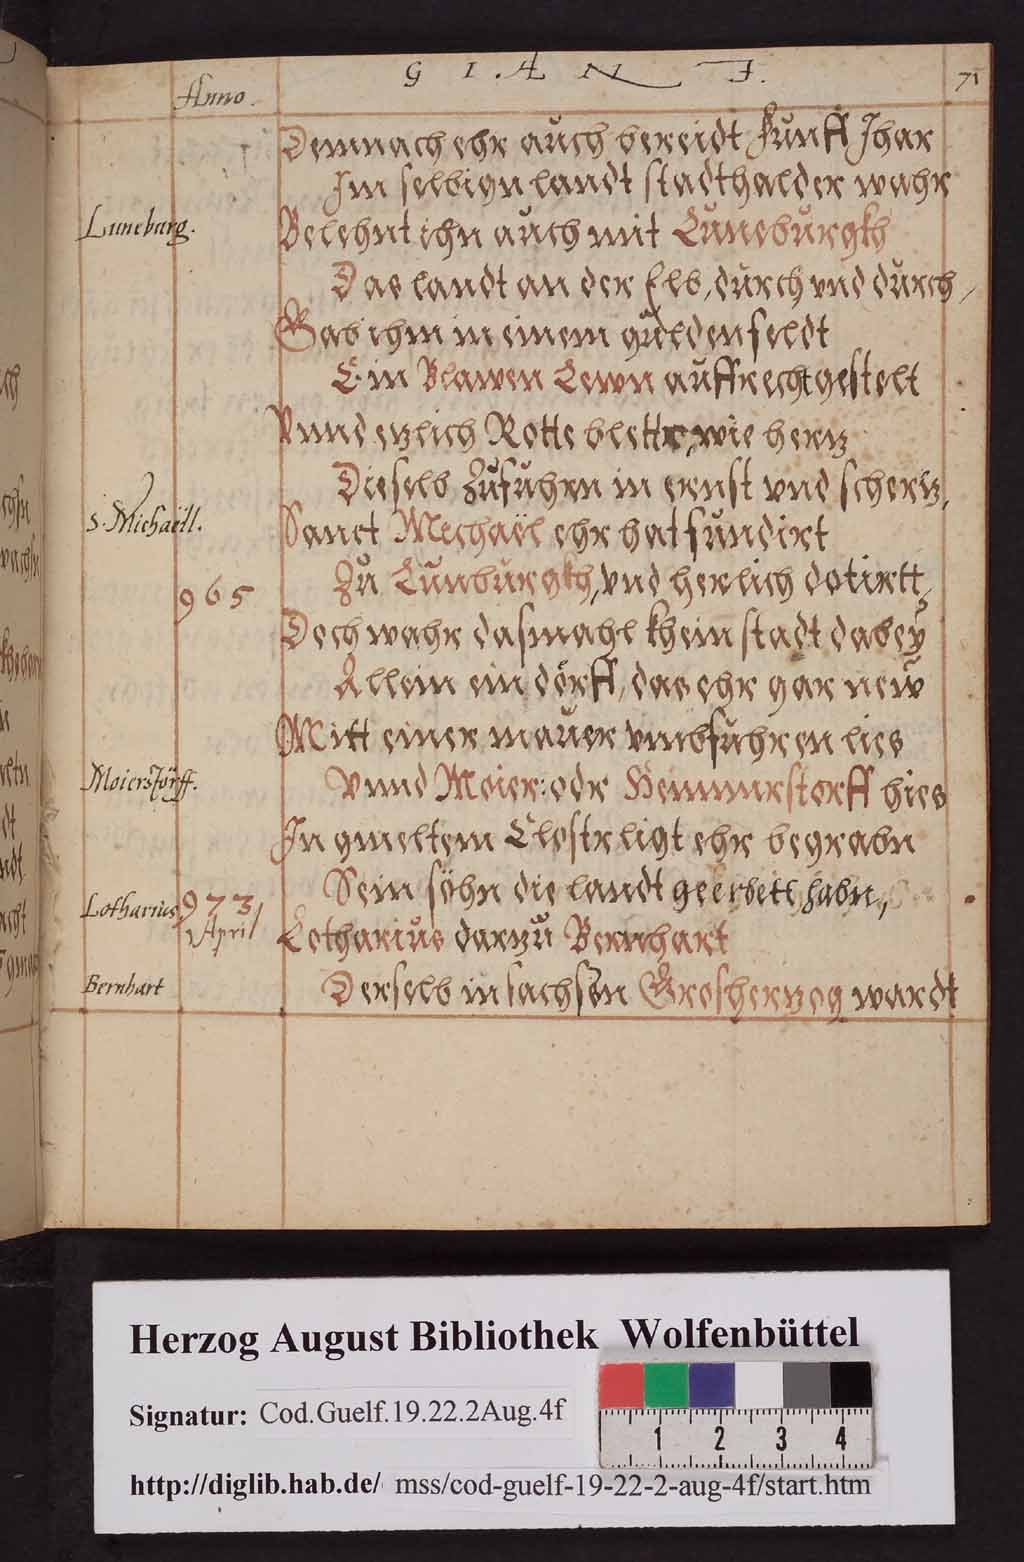 G I. A N F.
71
Anno.
Demnach ehr auch bereidt Funff Jhar
Im selbign landt stadthalder wahr
Luneburg.
Belehnt ihn auch mit Luneburgkh
Das landt an der Elb, durch vnd durch,
Gab ihm in einem guldenfeldt
Ein Blawen Lewn auffrecht gestelt
Vnnd etzlich Rotte blettr, wie hertz
Dieselb Zufuhrn in ernst vnd schertz,
S. Michaëll.
Sanct Mechaël ehr hat fundirt
965
Zu Lunburgkh, vnd herlich dotirtt,
Doch wahr dasmahl khein stadt dabey
Allein ein dörff, das ehr gar new
Mitt einer mauer vmbfuhren lies
Moierstörff.
Vnnd Moier: odr Hemmrstorff hies
In gmeltem Clostr ligt ehr begrabn
Sein söhn die landt geerbett habn,
Lotharius
973
1 April
Lotharius dartzu Bernhart
Bernhart
Derselb in sachsen Groshertzog wardt
Herzog August Bibliothek Wolfenbüttel
Signatur: Cod.Guelf.19.22.2Aug.4f
1 2 3 4
http://diglib.hab.de/ mss/cod-guelf-19-22-2-aug-4f/start.htm